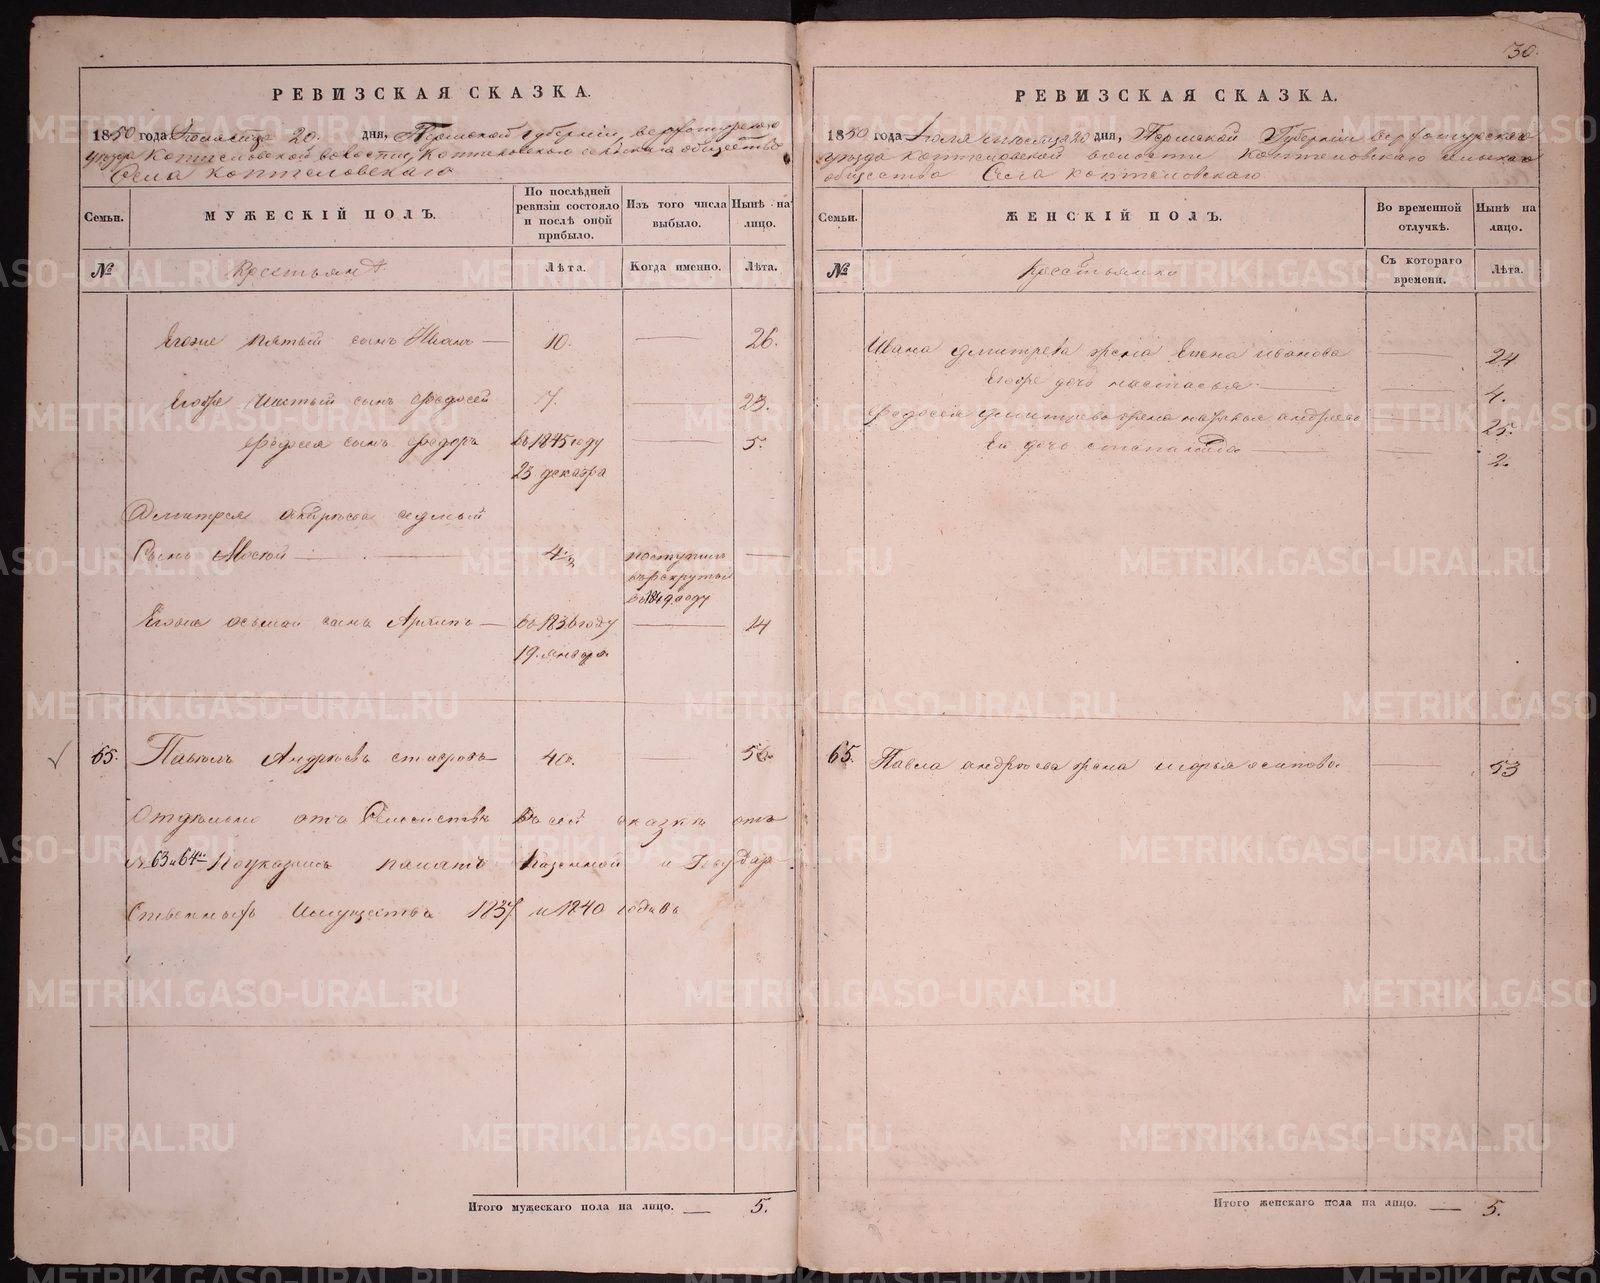 30.
РЕВИЗСКАЯ СКАЗКА.
1850 года Июля мца 20. дня, Пермской губернии, верхотурского
уезда коптеловской волости, коптеловского сельскаго общества
Села коптеловскаго
Семьи.
МУЖЕСКІЙ ПОЛЪ.
По послѣдней ревизіи состояло и послѣ оной прибыло.
Изъ того числа выбыло.
Нынѣ на лицо.
№
Крестьянъ
Лѣта.
Когда именно.
Лѣта.
Егоже пятый сынъ Иванъ — 10. — 26.
Егоже шестый сынъ Федосей 7. — 23.
Федосея сынъ Федоръ въ 1845 году — 5.
23 декабря
Дмитрея седмый
Сынъ — 4½ поступилъ —
в рекруты
въ 1849 году
Егоже осьмой сынъ Архипъ — въ 1836 году — 14
19. января
65. Павелъ Андреевъ 40. — 56.
Отдельно отъ Семейства въ сей сказке отъ
№ 63 и 64м По указамъ палатъ Казенной и Государ-
ственныхъ Имуществъ 1837 и 1840 годовъ
Итого мужескаго пола на лицо. — 5.
РЕВИЗСКАЯ СКАЗКА.
1850 года Июля месяца 20 дня, Пермской Губернии верхотурскаго
уезда коптеловской волости Коптеловскаго сельскаго
общества Села коптеловскаго
Семьи.
ЖЕНСКІЙ ПОЛЪ.
Во временной отлучкѣ.
Нынѣ на лицо.
№
Крестьянки
Съ котораго времени.
Лѣта.
Ивана дмитрева жена Елена иванова — 24
Егоже дочь настасья — — 4.
Федосея дмитрева жена андреева — 25.
Ея дочь степанида — — 2.
65. Павла андреева жена марья осипова — 53
Итого женскаго пола на лицо. — 5.
METRIKI.GASO-URAL.RU